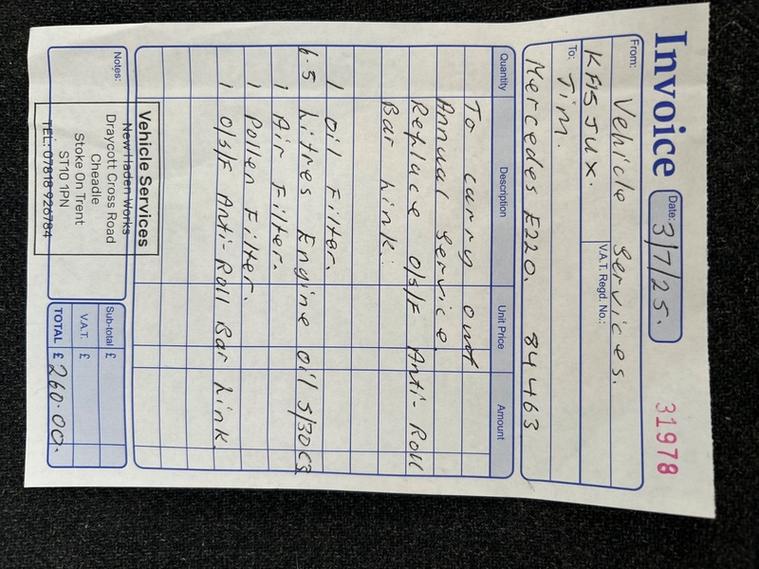 Invoice
Date: 3/7/25.
31978
From: Vehicle Services.
V.A.T. Regd. No.:
To: Tim.
Mercedes E220. 84463
Quantity Description Unit Price Amount
To carry out
Annual Service
Replace O/S/F Anti-Roll
Bar Link.
1 Oil Filter.
6.5 Litres Engine Oil 5/30 C3
1 Air Filter.
1 Pollen Filter.
1 O/S/F Anti-Roll Bar Link.
Notes:
Vehicle Services
New Haden Works
Draycott Cross Road
Cheadle
Stoke On Trent
ST10 1PN
TEL: 07818 926784
Sub-total £
V.A.T. £
TOTAL £ 260.00.